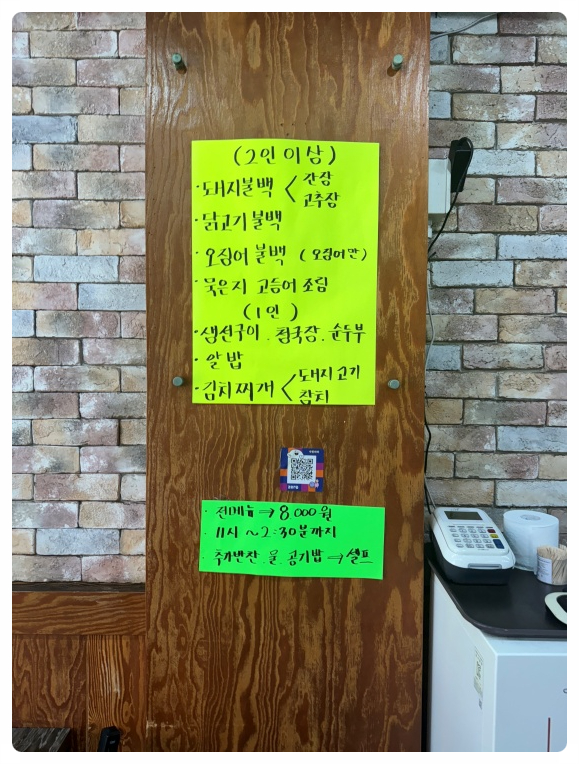 (2인 이상)
· 돼지불백 < 간장
고추장
· 닭고기불백
· 오징어 불백 (오징어만)
· 묵은지 고등어 조림
(1인)
· 생선구이. 청국장. 순두부
· 알밥
· 김치찌개 < 돼지고기
참치
· 전메뉴 → 8,000원
· 11시 ~ 2:30분까지
· 추가반찬. 물. 공기밥 → 셀프